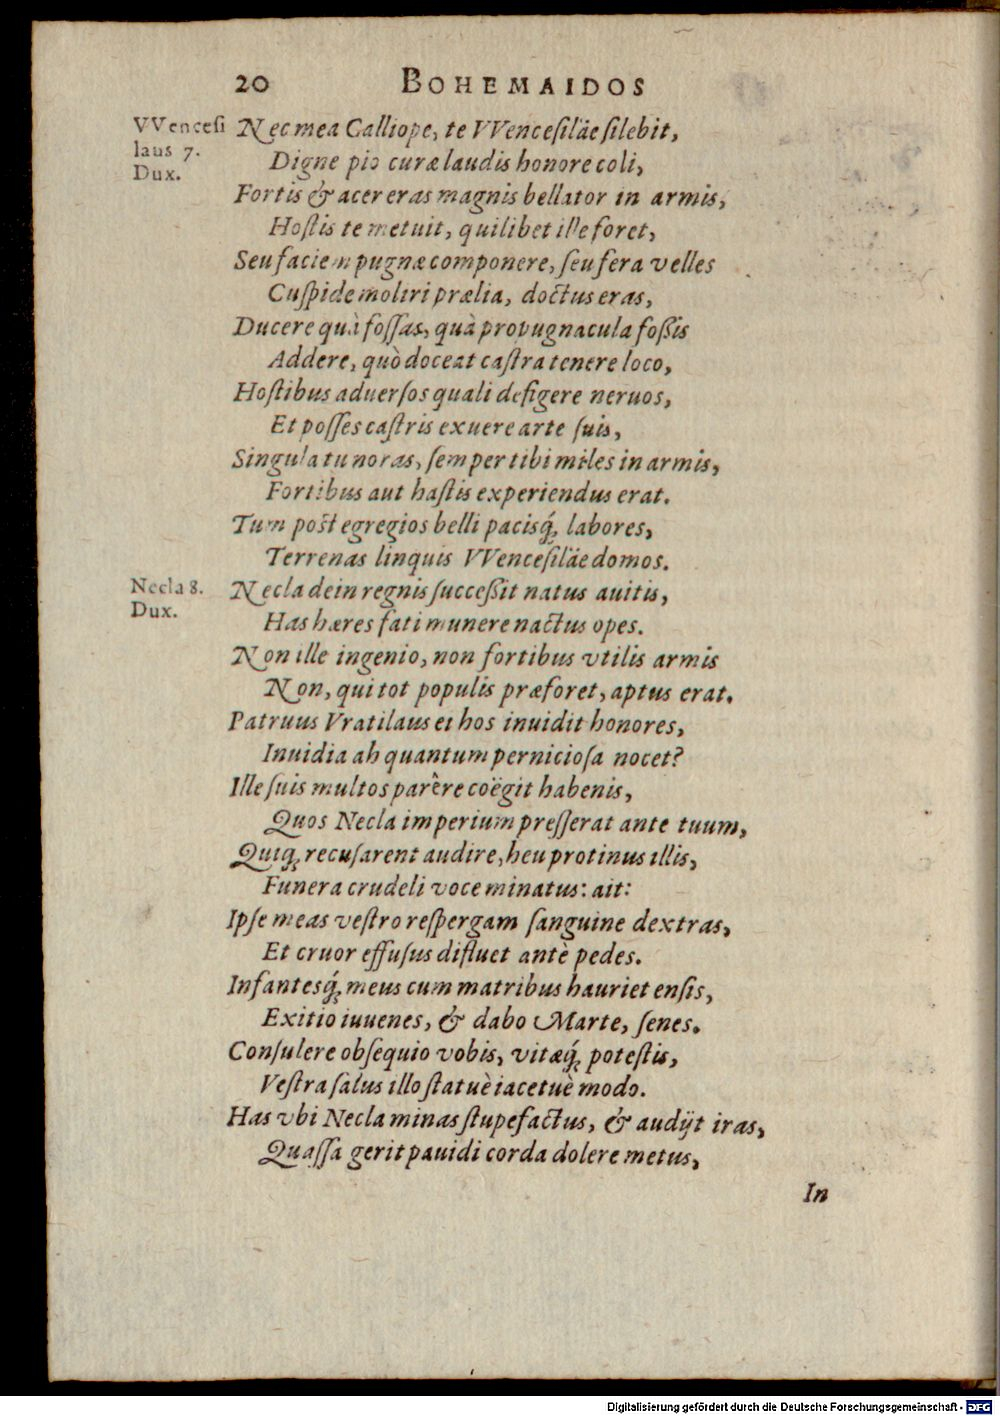 20 BOHEMAIDOS
VVencesi
laus 7.
Dux.
Nec mea Calliope, te VVencesiläe silebit,
Digne pio curæ laudis honore coli,
Fortis & acer eras magnis bellator in armis,
Hostis te metuit, quilibet ille foret,
Seu faciem pugnæ componere, seu fera velles
Cuspide moliri prælia, doctus eras,
Ducere quà fossas, quà propugnacula fossis
Addere, quò doceat castra tenere loco,
Hostibus aduersos quali defigere neruos,
Et posses castris exuere arte suis,
Singula tu noras, semper tibi miles in armis,
Fortibus aut hastis experiendus erat.
Tum post egregios belli pacisq́; labores,
Terrenas linquis VVencesiläe domos.
Necla 8.
Dux.
Necla dein regnis successit natus auitis,
Has hæres fati munere nactus opes.
Non ille ingenio, non fortibus vtilis armis
Non, qui tot populis præforet, aptus erat.
Patruus Vratilaus ei hos inuidit honores,
Inuidia ah quantum perniciosa nocet?
Ille suis multos parêre coëgit habenis,
Quos Necla imperium presserat ante tuum,
Quiq; recusarent audire, heu protinus illis,
Funera crudeli voce minatus: ait:
Ipse meas vestro respergam sanguine dextras,
Et cruor effusus difluet antè pedes.
Infantesq́; meus cum matribus hauriet ensis,
Exitio iuuenes, & dabo Marte, senes.
Consulere obsequio vobis, vitæq́; potestis,
Vestra salus illo statuè iacetuè modo.
Has vbi Necla minas stupefactus, & audijt iras,
Quassa gerit pauidi corda dolere metus,
In
Digitalisierung gefördert durch die Deutsche Forschungsgemeinschaft - DFG